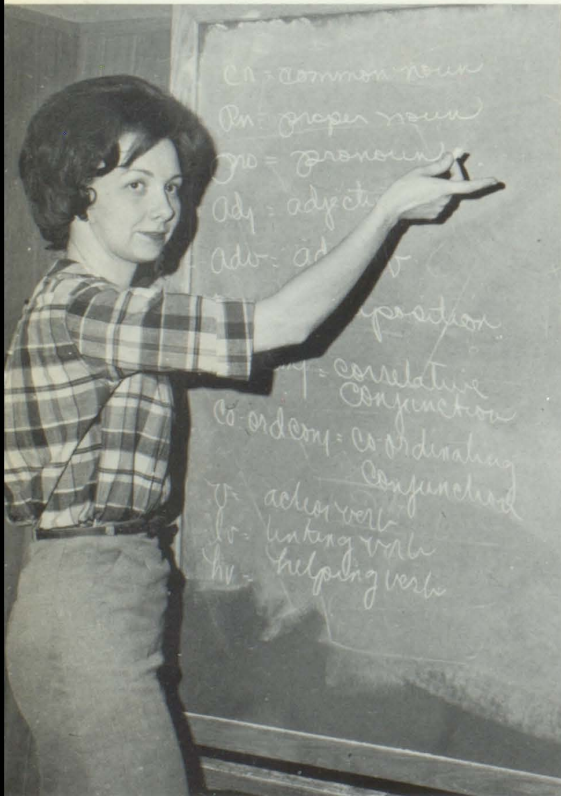 cn = common noun
Pn = proper noun
pro = pronoun
adj = adjecti
adv = ad
position
= correlative
Conjunction
Co-ord conj = co-ordinating
Conjunction
v = action verb
lv = linking verb
hv = helping verb